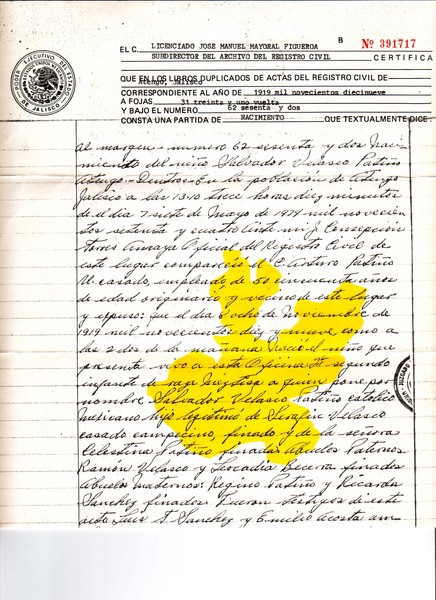 B
Nº 391717
EL C. LICENCIADO JOSE MANUEL MAYORAL FIGUEROA
SUBDIRECTOR DEL ARCHIVO DEL REGISTRO CIVIL CERTIFICA
QUE EN LOS LIBROS DUPLICADOS DE ACTAS DEL REGISTRO CIVIL DE
Atengo, Jalisco
CORRESPONDIENTE AL AÑO DE 1919 mil novecientos diecinueve
A FOJAS 31 treinta y uno vuelta
Y BAJO EL NUMERO 62 sesenta y dos
CONSTA UNA PARTIDA DE NACIMIENTO QUE TEXTUALMENTE DICE:
PODER EJECUTIVO DEL ESTADO DE JALISCO
al margen - numero 62 sesenta y dos Naci
miento del niño Salvador Velasco Patiño
Atengo - Dentro - En la población de Atengo
Jalisco a las 13-10 trece horas diez minutos
de el dia 7 siete de Mayo de 1974 mil novecien
tos setenta y cuatro ante mi J. Consepción
Torres Amaya Oficial del Registro Civil de
este lugar compareció el C. Arturo Patiño
V. casado, empleado de 50 cincuenta años
de edad originario y vecino de este lugar
y expuso: que el dia 8 ocho de Noviembre de
1919 mil novecientos diez y nueve como a
las 2 dos de la mañana Nació el niño que
presenta vivo a esta Oficina segundo
infante de raza mestiza a quien pone por
nombre Salvador Velasco Patiño catolico
mexicano hijo legitimo de Serafin Velasco
casado campecino, finado y de la señora
Celestina Patiño finada: Abuelos Paternos
Ramón Velasco y Leocadia Becerra finados
Abuelos maternos: Regino Patiño y Ricarda
Sanchez finados. Fueron testigos de este
acto Luis F. Sanchez y Emilio Acosta am